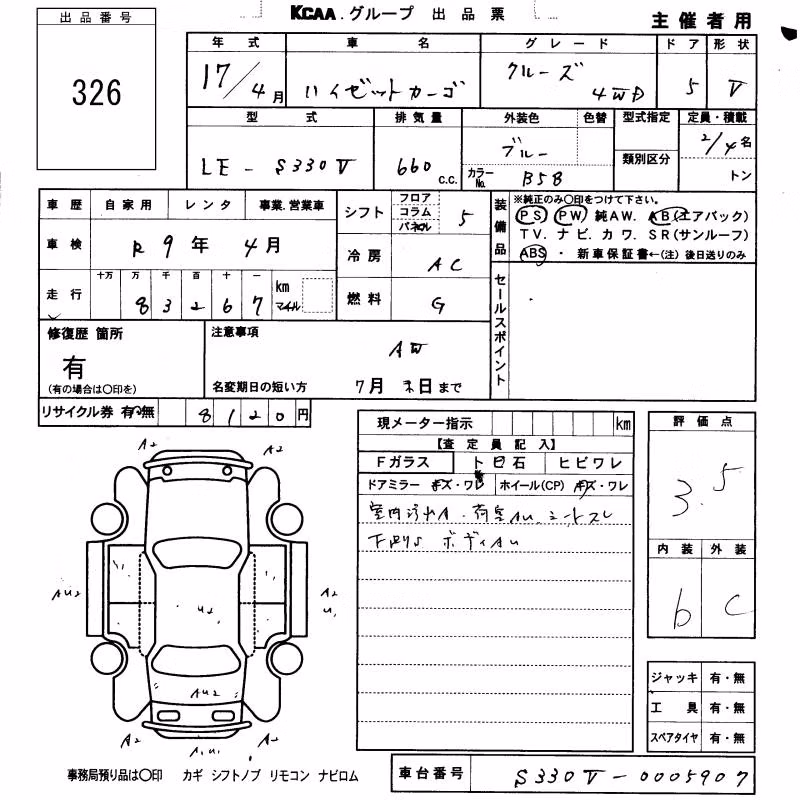 出品番号
326
KCAA.グループ 出品票
主催者用
年式 車名 グレード ドア 形状
17/4月 ハイゼットカーゴ クルーズ 4WD 5 V
型式 排気量 外装色 色替 型式指定 定員・積載
LE-S330V 660 c.c. ブルー 類別区分 2/4名
カラーNo. B58 トン
車歴 自家用 レンタ 事業.営業車
車検 R9年 4月
走行 十万 万 千 百 十 一
83267 km マイル
シフト フロア コラム パネル 5
冷房 AC
燃料 G
装備品 ※純正のみ〇印をつけて下さい。
PS PW 純AW. AB(エアバック)
TV. ナビ. カワ. SR(サンルーフ)
ABS ・ 新車保証書←(注) 後日送りのみ
セールスポイント
修復歴 箇所
有
(有の場合は〇印を)
注意事項
AW
名変期日の短い方 7月末日まで
リサイクル券 有・無 8120円
現メーター指示 km
【査定員記入】
Fガラス トビ石 ヒビワレ
ドアミラー キズ・ワレ ホイール(CP) キズ・ワレ
室内汚れA.荷室AU.シートスレ
下廻りS ボディAU
評価点
3.5
内装 外装
b C
A2 A2
AU2 U2 A2
U1
AU2
A2 A1U1 A2
ジャッキ 有・無
工具 有・無
スペアタイヤ 有・無
事務局預り品は〇印 カギ シフトノブ リモコン ナビロム
車台番号 S330V-0005907